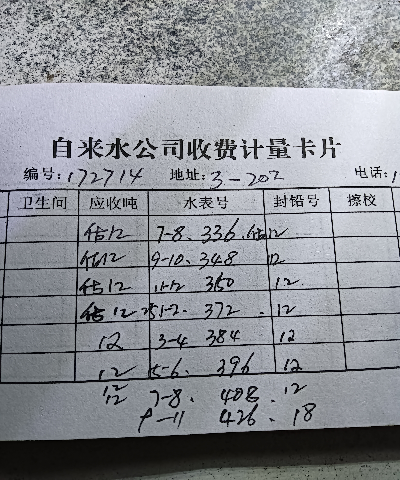 自来水公司收费计量卡片
编号:172714 地址:3-202 电话:1
卫生间 应收吨 水表号 封铅号 擦校
估12 7-8、336、估12
估12 9-10、348 12
估12 11-12 360 12、
估12 25.1-2、372、12
12 3-4 384 12
12 5-6、396 12
12 7-8、408、12
9-11 426、18